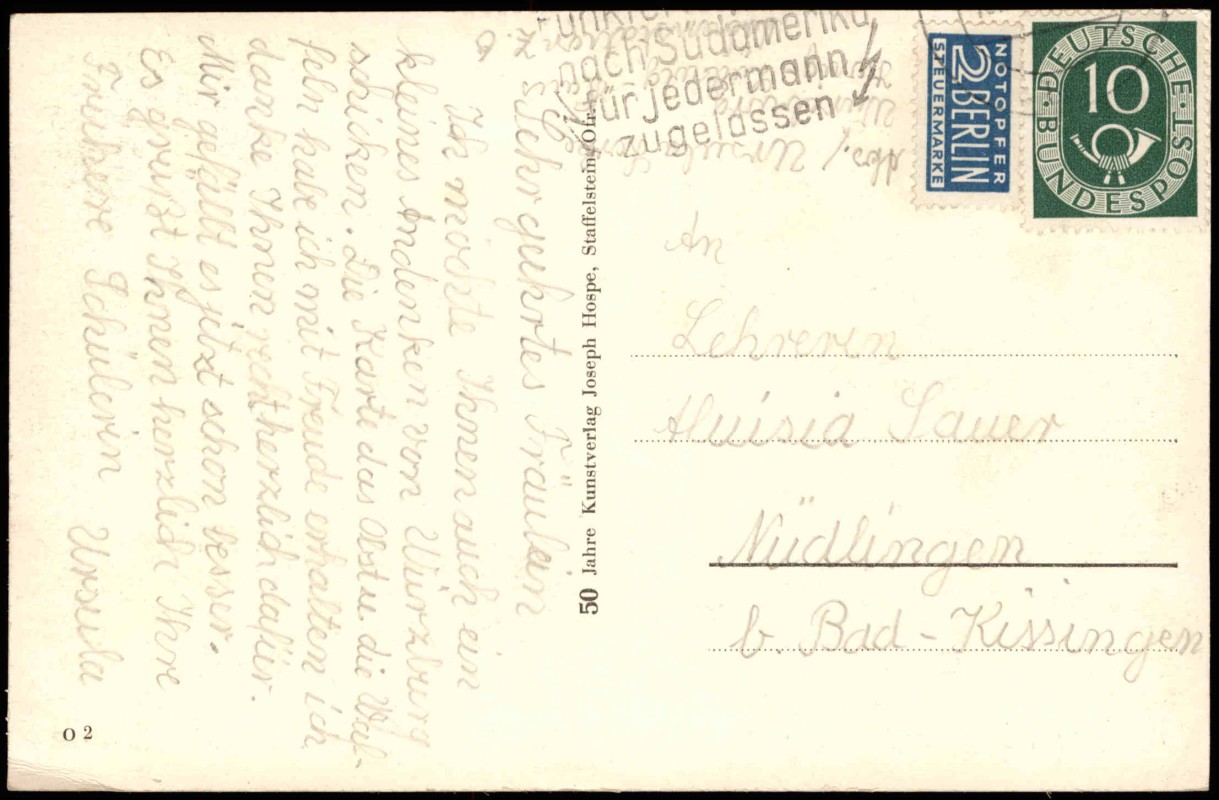 Sehr geehrtes Fräulein
Ich möchte Ihnen auch ein
kleines Andenken von Würzburg
schicken. Die Karte das Obst u. die Waf-
feln habe ich mit Freude erhalten ich
danke Ihnen recht herzlich dafür.
Mir gefällt es jetzt schon besser.
Es grüßt Ihnen herzlich Ihre
Frühere Schülerin Ursula
O 2
50 Jahre Kunstverlag Joseph Hospe, Staffelstein/Ofr.
nach Südamerika
für jedermann
zugelassen
Abs./ Ursula
NOTOPFER
2 BERLIN
STEUERMARKE
DEUTSCHE
10
BUNDESPOST
An
Lehrerin
Aluisia Sauer
Nüdlingen
b. Bad-Kissingen